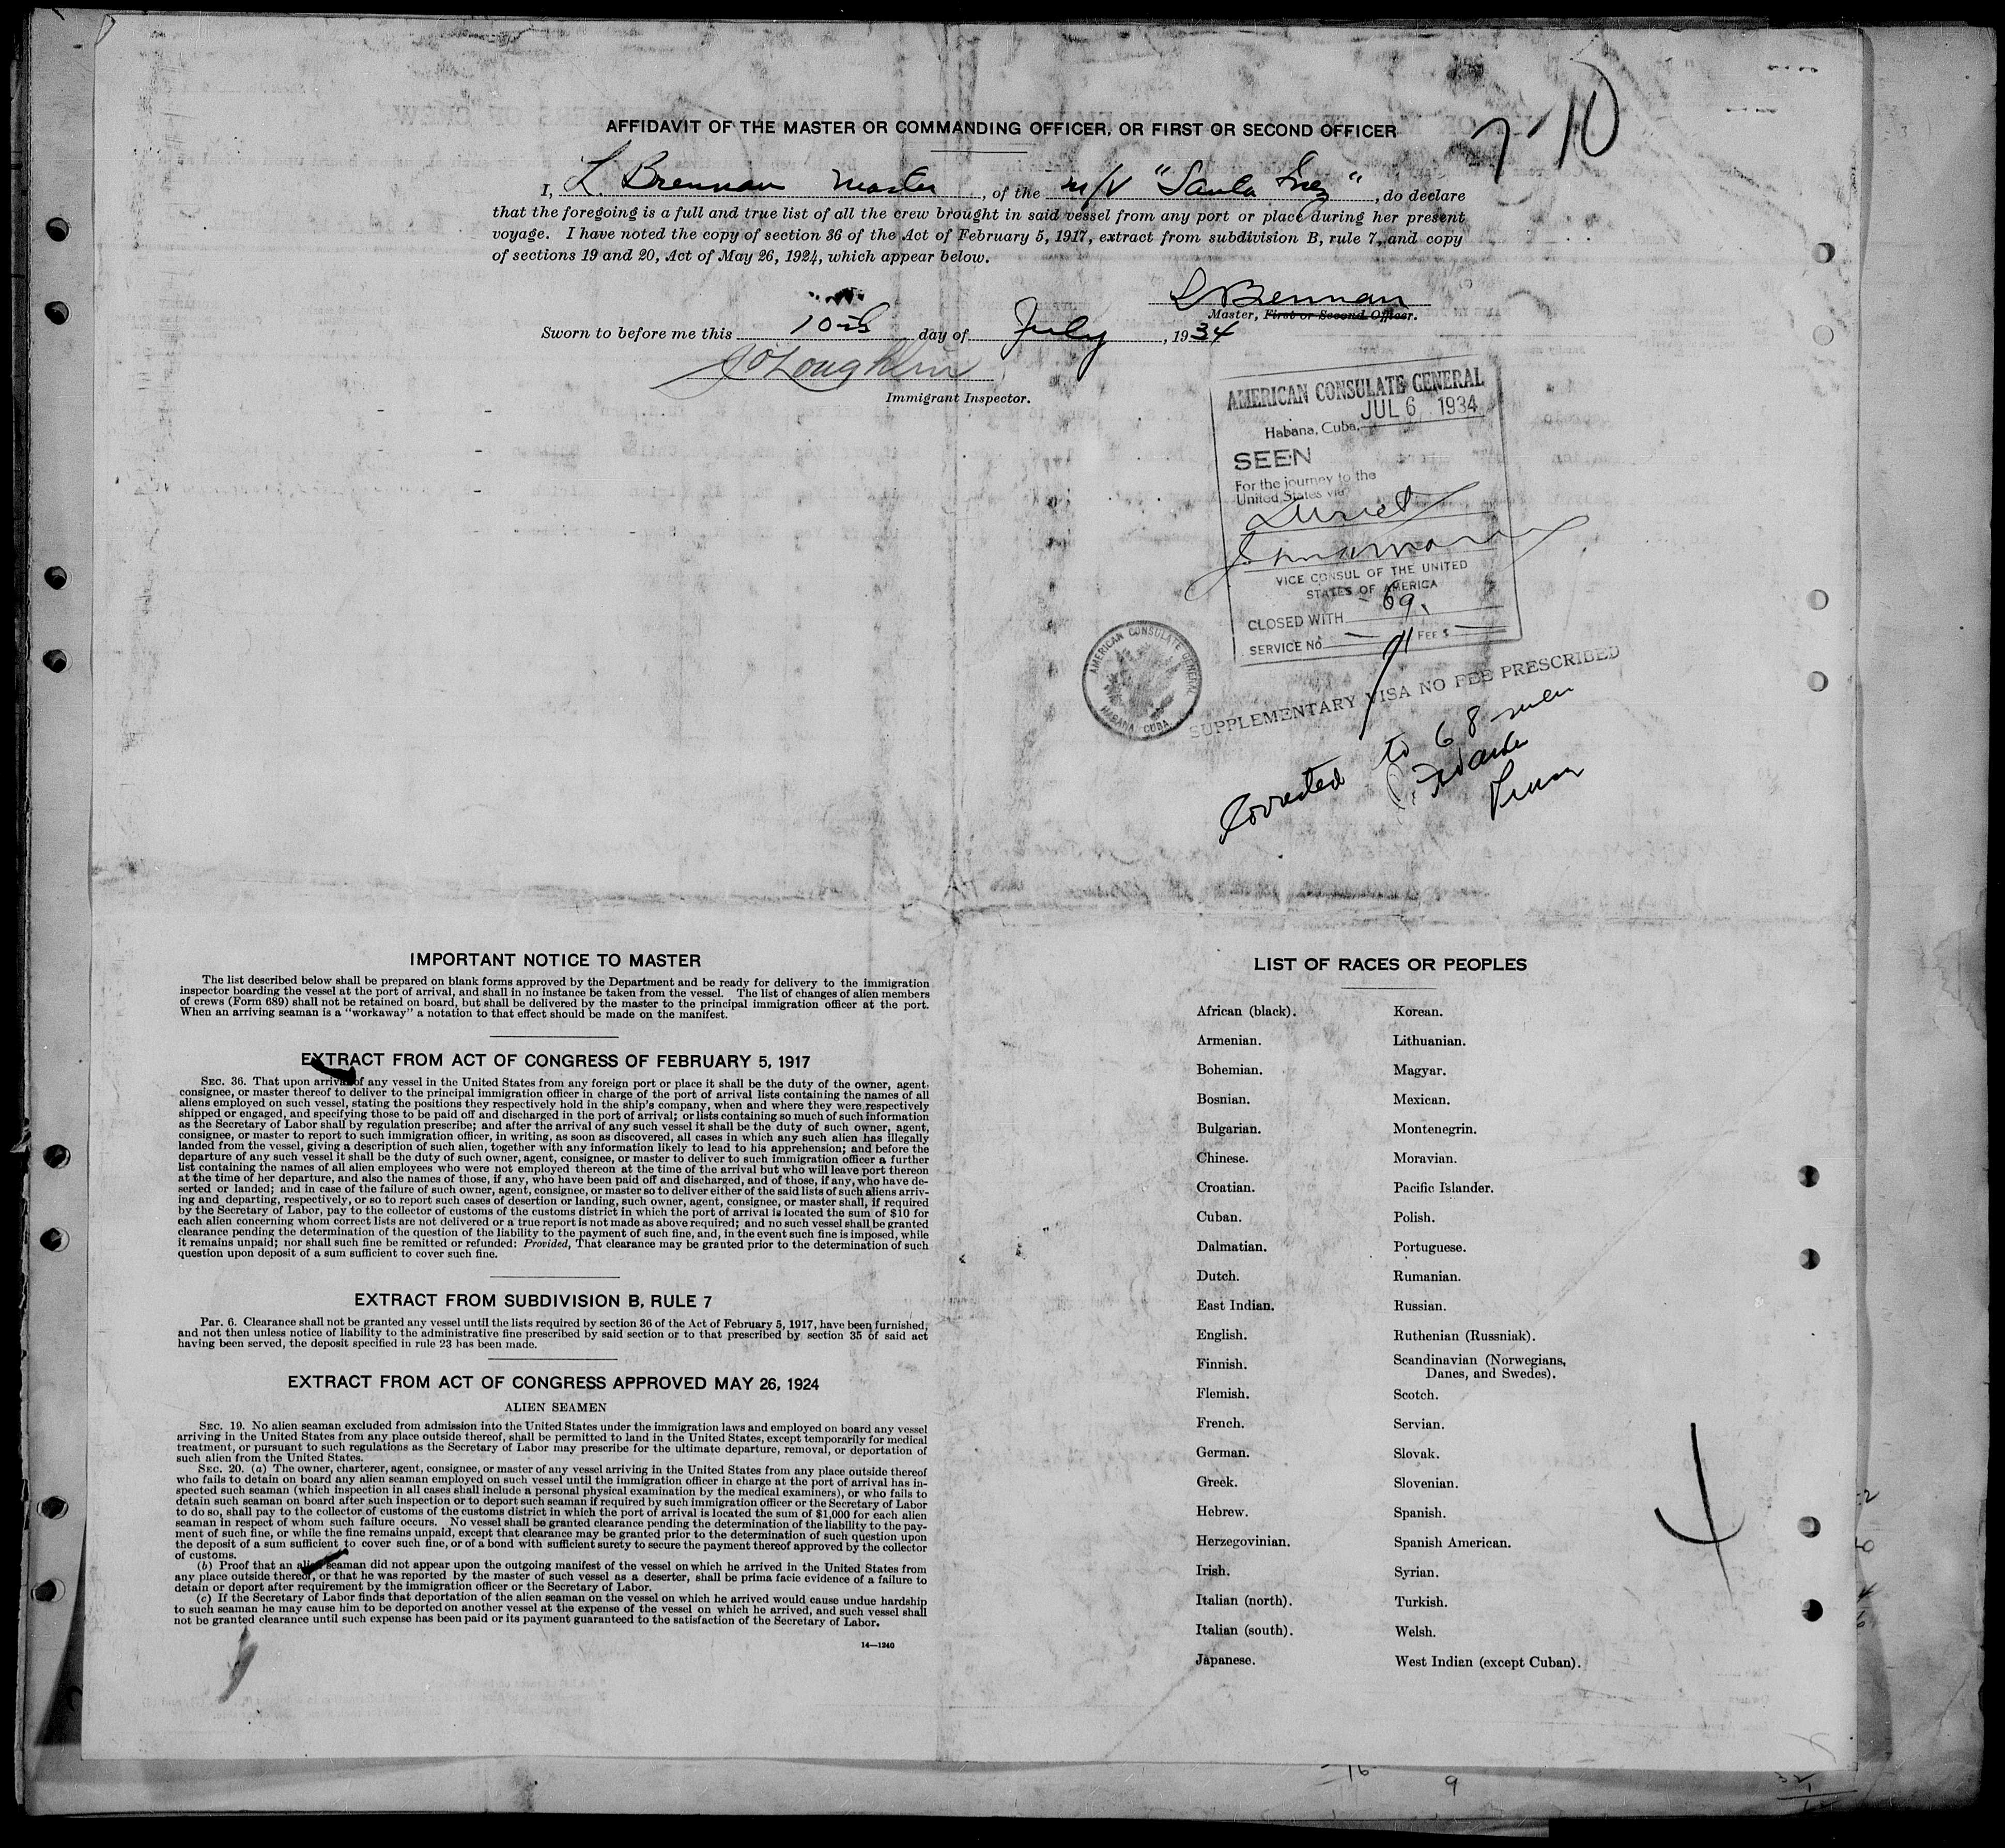 7-10
AFFIDAVIT OF THE MASTER OR COMMANDING OFFICER, OR FIRST OR SECOND OFFICER
I, L. Brennan Master, of the M/V "Santa Inez", do declare
that the foregoing is a full and true list of all the crew brought in said vessel from any port or place during her present
voyage. I have noted the copy of section 36 of the Act of February 5, 1917, extract from subdivision B, rule 7, and copy
of sections 19 and 20, Act of May 26, 1924, which appear below.
L Brennan
Master, First or Second Officer.
Sworn to before me this 10th day of July, 1934
J O'Loughlin
Immigrant Inspector.
AMERICAN CONSULATE GENERAL
JUL 6 1934
Habana, Cuba,
SEEN
For the journey to the
United States via
Direct
VICE CONSUL OF THE UNITED
STATES OF AMERICA
CLOSED WITH 69.
SERVICE No — FEE $ —
AMERICAN CONSULATE GENERAL
HABANA CUBA
SUPPLEMENTARY VISA NO FEE PRESCRIBED
Corrected to 68 men
IMPORTANT NOTICE TO MASTER
The list described below shall be prepared on blank forms approved by the Department and be ready for delivery to the immigration
inspector boarding the vessel at the port of arrival, and shall in no instance be taken from the vessel. The list of changes of alien members
of crews (Form 689) shall not be retained on board, but shall be delivered by the master to the principal immigration officer at the port.
When an arriving seaman is a "workaway" a notation to that effect should be made on the manifest.
EXTRACT FROM ACT OF CONGRESS OF FEBRUARY 5, 1917
SEC. 36. That upon arrival of any vessel in the United States from any foreign port or place it shall be the duty of the owner, agent,
consignee, or master thereof to deliver to the principal immigration officer in charge of the port of arrival lists containing the names of all
aliens employed on such vessel, stating the positions they respectively hold in the ship's company, when and where they were respectively
shipped or engaged, and specifying those to be paid off and discharged in the port of arrival; or lists containing so much of such information
as the Secretary of Labor shall by regulation prescribe; and after the arrival of any such vessel it shall be the duty of such owner, agent,
consignee, or master to report to such immigration officer, in writing, as soon as discovered, all cases in which any such alien has illegally
landed from the vessel, giving a description of such alien, together with any information likely to lead to his apprehension; and before the
departure of any such vessel it shall be the duty of such owner, agent, consignee, or master to deliver to such immigration officer a further
list containing the names of all alien employees who were not employed thereon at the time of the arrival but who will leave port thereon
at the time of her departure, and also the names of those, if any, who have been paid off and discharged, and of those, if any, who have de-
serted or landed; and in case of the failure of such owner, agent, consignee, or master so to deliver either of the said lists of such aliens arriv-
ing and departing, respectively, or so to report such cases of desertion or landing, such owner, agent, consignee, or master shall, if required
by the Secretary of Labor, pay to the collector of customs of the customs district in which the port of arrival is located the sum of $10 for
each alien concerning whom correct lists are not delivered or a true report is not made as above required; and no such vessel shall be granted
clearance pending the determination of the question of the liability to the payment of such fine, and, in the event such fine is imposed, while
it remains unpaid; nor shall such fine be remitted or refunded: Provided, That clearance may be granted prior to the determination of such
question upon deposit of a sum sufficient to cover such fine.
EXTRACT FROM SUBDIVISION B, RULE 7
Par. 6. Clearance shall not be granted any vessel until the lists required by section 36 of the Act of February 5, 1917, have been furnished,
and not then unless notice of liability to the administrative fine prescribed by said section or to that prescribed by section 35 of said act
having been served, the deposit specified in rule 23 has been made.
EXTRACT FROM ACT OF CONGRESS APPROVED MAY 26, 1924
ALIEN SEAMEN
SEC. 19. No alien seaman excluded from admission into the United States under the immigration laws and employed on board any vessel
arriving in the United States from any place outside thereof, shall be permitted to land in the United States, except temporarily for medical
treatment, or pursuant to such regulations as the Secretary of Labor may prescribe for the ultimate departure, removal, or deportation of
such alien from the United States.
SEC. 20. (a) The owner, charterer, agent, consignee, or master of any vessel arriving in the United States from any place outside thereof
who fails to detain on board any alien seaman employed on such vessel until the immigration officer in charge at the port of arrival has in-
spected such seaman (which inspection in all cases shall include a personal physical examination by the medical examiners), or who fails to
detain such seaman on board after such inspection or to deport such seaman if required by such immigration officer or the Secretary of Labor
to do so, shall pay to the collector of customs of the customs district in which the port of arrival is located the sum of $1,000 for each alien
seaman in respect of whom such failure occurs. No vessel shall be granted clearance pending the determination of the liability to the pay-
ment of such fine, or while the fine remains unpaid, except that clearance may be granted prior to the determination of such question upon
the deposit of a sum sufficient to cover such fine, or of a bond with sufficient surety to secure the payment thereof approved by the collector
of customs.
(b) Proof that an alien seaman did not appear upon the outgoing manifest of the vessel on which he arrived in the United States from
any place outside thereof, or that he was reported by the master of such vessel as a deserter, shall be prima facie evidence of a failure to
detain or deport after requirement by the immigration officer or the Secretary of Labor.
(c) If the Secretary of Labor finds that deportation of the alien seaman on the vessel on which he arrived would cause undue hardship
to such seaman he may cause him to be deported on another vessel at the expense of the vessel on which he arrived, and such vessel shall
not be granted clearance until such expense has been paid or its payment guaranteed to the satisfaction of the Secretary of Labor.
14—1240
LIST OF RACES OR PEOPLES
African (black). Korean.
Armenian. Lithuanian.
Bohemian. Magyar.
Bosnian. Mexican.
Bulgarian. Montenegrin.
Chinese. Moravian.
Croatian. Pacific Islander.
Cuban. Polish.
Dalmatian. Portuguese.
Dutch. Rumanian.
East Indian. Russian.
English. Ruthenian (Russniak).
Finnish. Scandinavian (Norwegians,
Danes, and Swedes).
Flemish. Scotch.
French. Servian.
German. Slovak.
Greek. Slovenian.
Hebrew. Spanish.
Herzegovinian. Spanish American.
Irish. Syrian.
Italian (north). Turkish.
Italian (south). Welsh.
Japanese. West Indian (except Cuban).
16
9